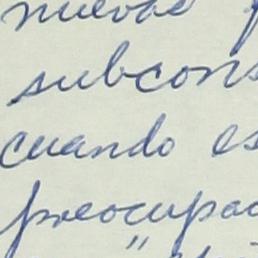 nuevas
subcons
cuando es
preocupac
"